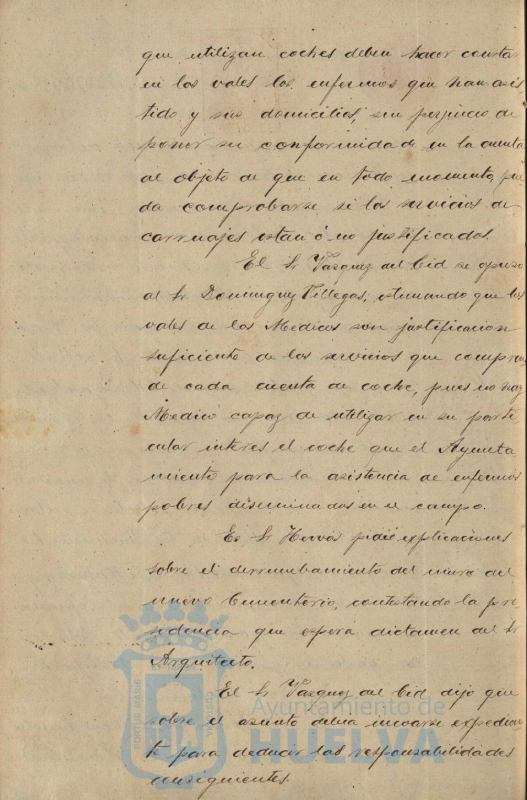 que utilizan coches deben hacer constar
en los vales los enfermos que han asis
tido y sus domicilios, sin perjuicio de
poner su conformidad en la cuenta
al objeto de que en todo momento, pue
da comprobarse si los servicios de
carruajes estan ó no justificados.
El Sr Vazquez del Cid se opuso
al Sr Dominguez Villegas, estimando que los
vales de los Medicos son justificacion
suficiente de los servicios que compren
de cada cuenta de coche, pues no hay
Medico capaz de utilizar en su parti
cular interes el coche que el Ayunta
miento para la asistencia de enfermos
pobres diseminados en el campo.
El Sr Hervás pidió explicaciones
sobre el derrumbamiento del muro del
nuevo Cementerio, contestando la pre
sidencia que espera dictamen del Sr
Arquitecto.
El Sr Vazquez del Cid dijo que
sobre el asunto debia incoarse expedien
te para deducir las responsabilidades
consiguientes.
PORTUS MARIS ET TERRAE CUSTODIA
Ayuntamiento de
HUELVA